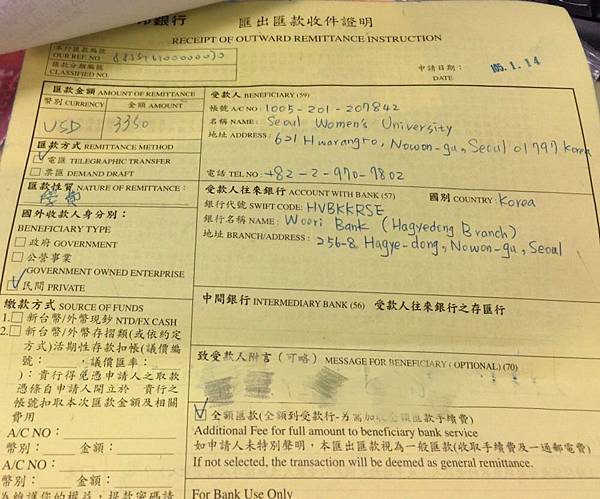 銀行 匯出匯款收件證明
RECEIPT OF OUTWARD REMITTANCE INSTRUCTION
本行匯款編號
OUR REF NO
匯款分類編號
CLASSIFIED NO.
申請日期：
DATE
105.1.14
匯款金額 AMOUNT OF REMITTANCE
幣別 CURRENCY 金額 AMOUNT
USD 3350
匯款方式 REMITTANCE METHOD
電匯 TELEGRAPHIC TRANSFER
票匯 DEMAND DRAFT
匯款性質 NATURE OF REMITTANCE：
學費
國外收款人身分別：
BENEFICIARY TYPE
政府 GOVERNMENT
公營事業
GOVERNMENT OWNED ENTERPRISE
民間 PRIVATE
繳款方式 SOURCE OF FUNDS
1. 新台幣/外幣現鈔 NTD/FX CASH
2. 新台幣/外幣存摺類(或依約定
方式)活期性存款扣帳(議價編
號： ，議價匯率：
)：貴行得免憑申請人之取款
憑條自申請人開立於 貴行之
帳號扣取本次匯款金額及相關
費用
A/C NO：
幣別： 金額：
A/C NO：
幣別： 金額：
為維護您的權益，提款密碼請
受款人 BENEFICIARY (59)
帳號 A/C NO：1005-201-207842
名稱 NAME：Seoul Women's University
地址 ADDRESS：621 Hwarangro, Nowon-gu, Seoul 01797 Korea
電話 TEL NO：+82-2-970-7802
受款人往來銀行 ACCOUNT WITH BANK (57) 國別 COUNTRY：Korea
銀行代號 SWIFT CODE：HVBKKRSE
銀行名稱 NAME：Woori Bank (Hagyedong Branch)
地址 BRANCH/ADDRESS：256-8 Hagye-dong, Nowon-gu, Seoul
中間銀行 INTERMEDIARY BANK (56) 受款人往來銀行之存匯行
致受款人附言(可略) MESSAGE FOR BENEFICIARY (OPTIONAL) (70)
全額匯款(全額到受款行-另需加收全額匯款手續費)
Additional Fee for full amount to beneficiary bank service
如申請人未特別聲明，本匯出匯款視為一般匯款(收取手續費及一通郵電費)
If not selected, the transaction will be deemed as general remittance.
For Bank Use Only